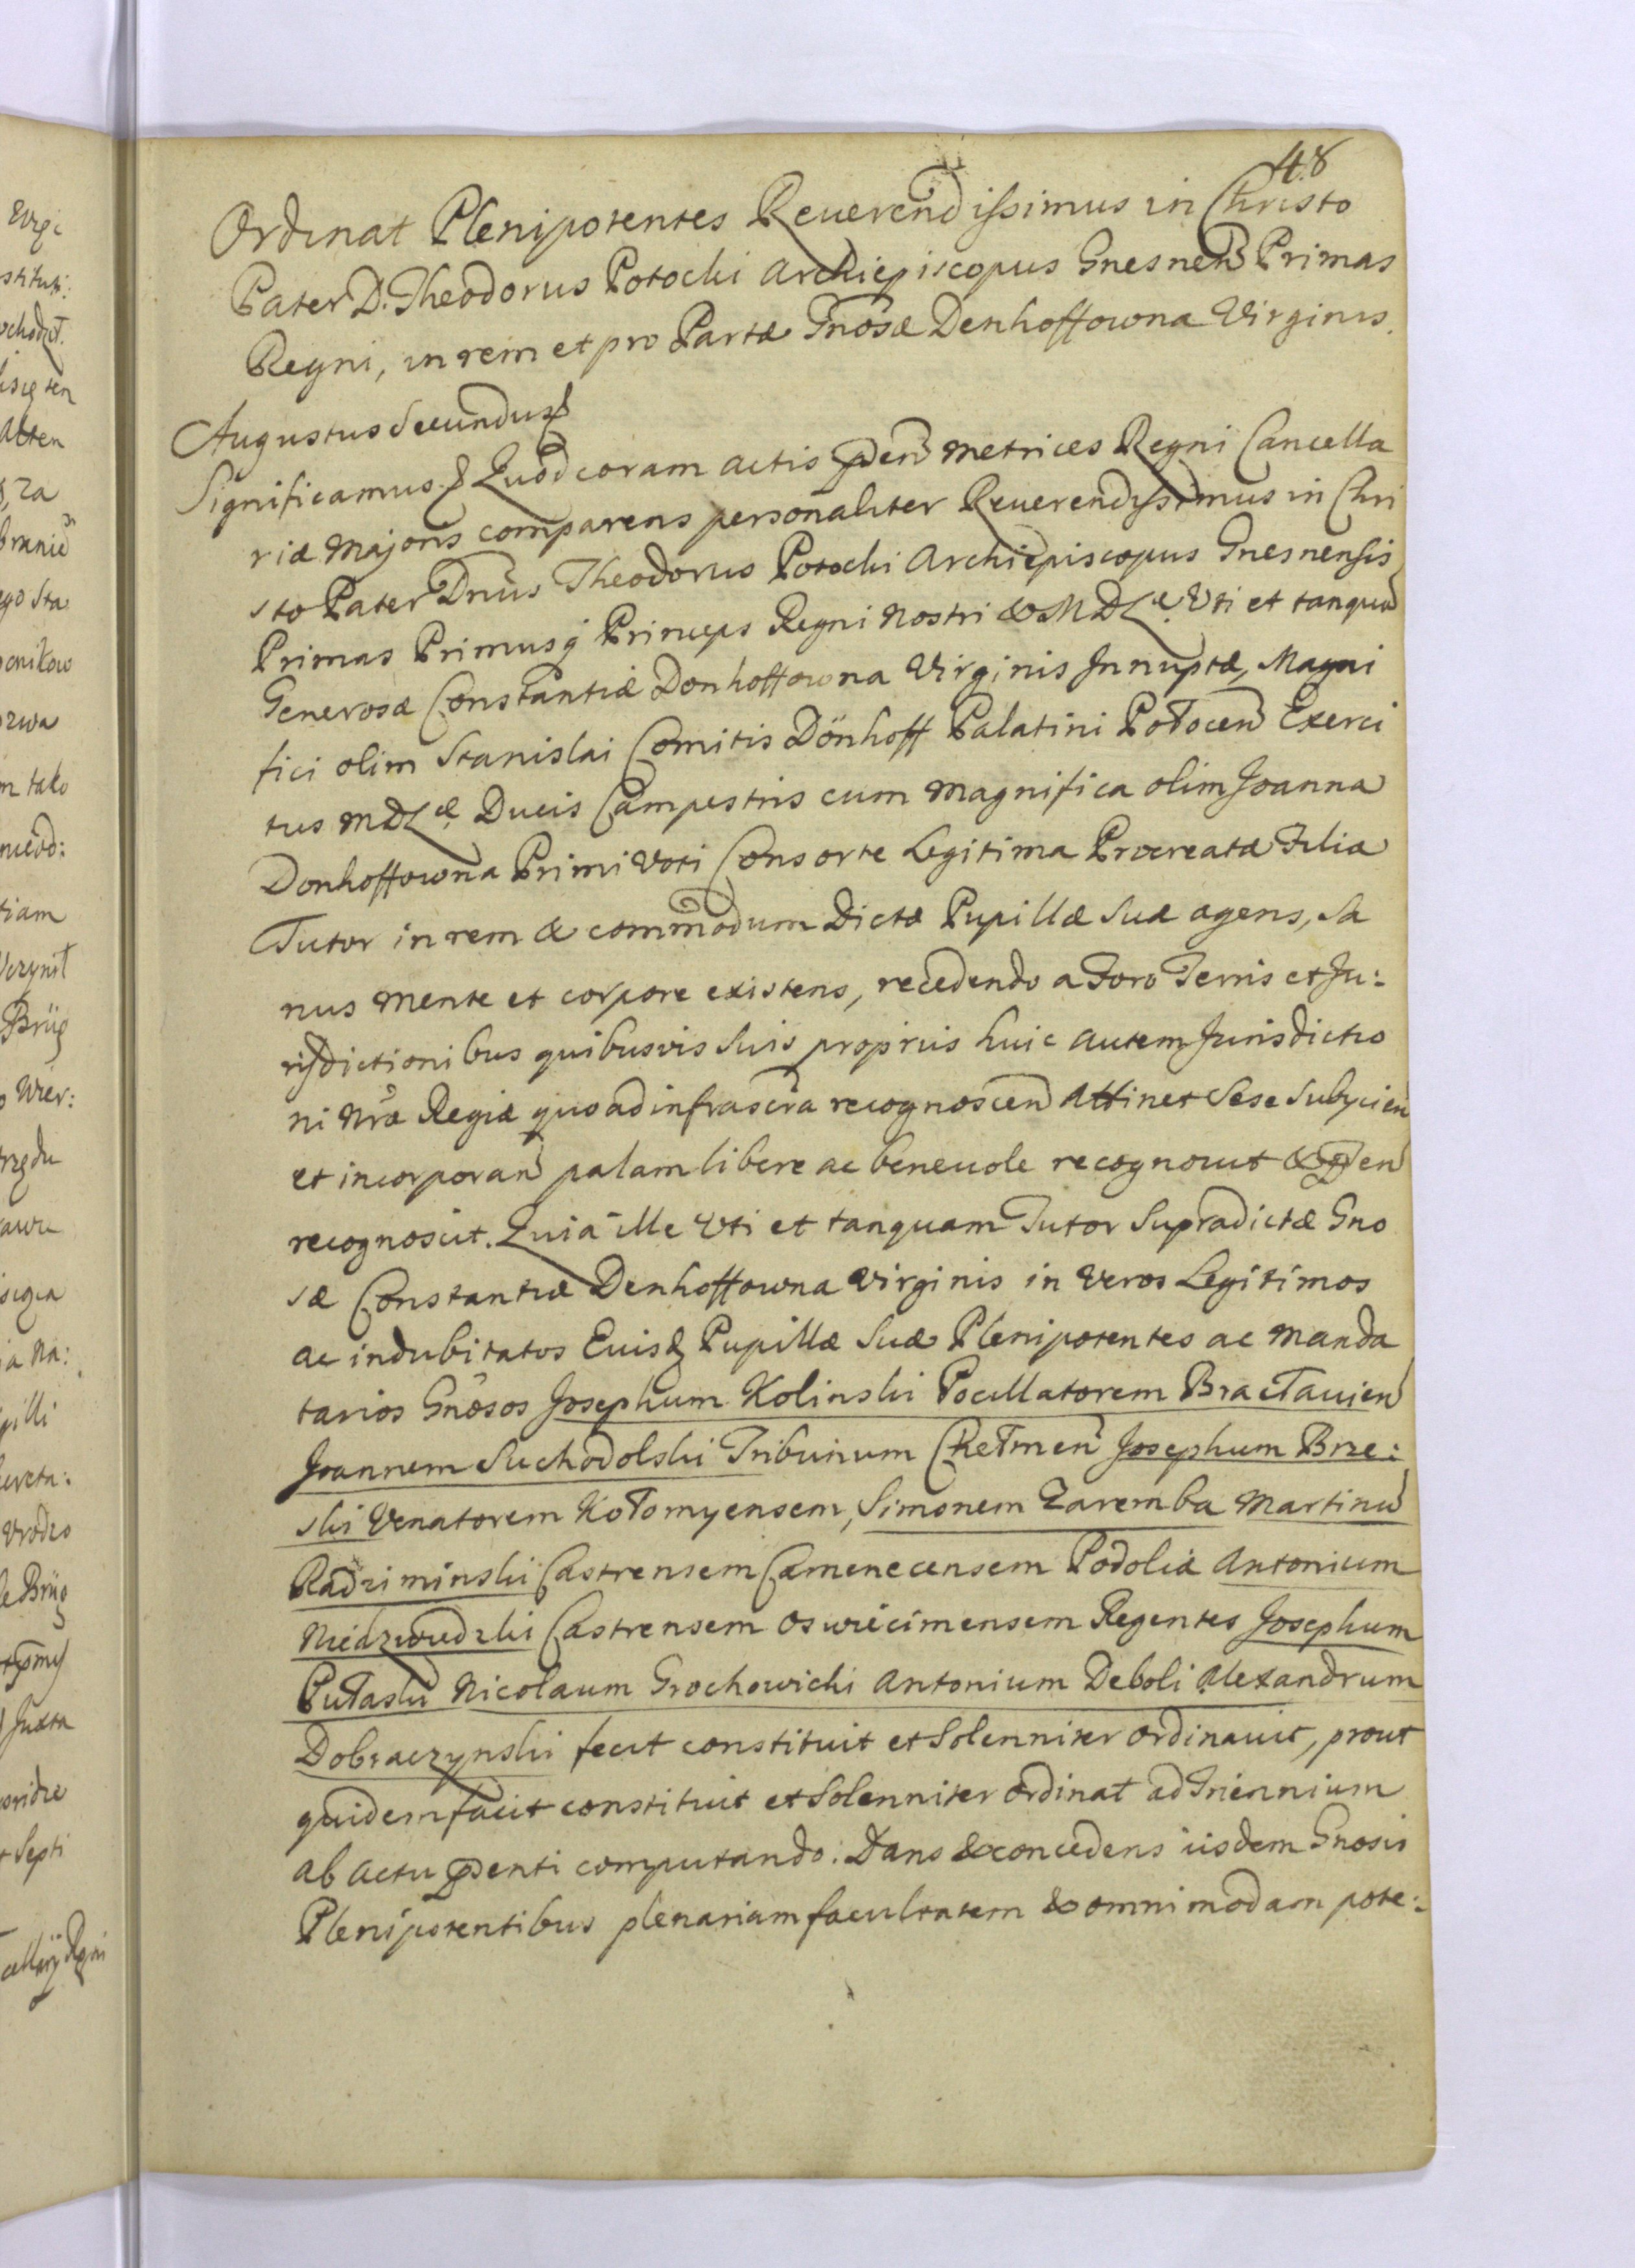 48
Ordinat Plenipotentes Reuerendissimus in Christo
Pater D. Theodorus Potocki Archiepiscopus Gnesnen Primas
Regni, in rem et pro Parte Gnosæ Denhoffowna Virginis.
Augustus Secundus
Significamus Quod coram actis pñen Metrices Regni Cancella
riæ Majoris comparens personaliter Reuerendyssimus in Chri
sto Pater Dnus Theodorus Potocki Archiepiscopus Gnesnensis
Primas Primusq Princeps Regni Nostri & M D L æ. Uti et tanqua
Generosæ Constantiæ Donhoffowna Virginis Innuptæ, Magni
fici olim Stanislai Comitis Dönhoff Palatini Połocen Exerci
tus M D L æ. Ducis Campestris cum Magnifica olim Joanna
Donhoffowna Primi Voti Consorte Legitima Procreatæ Filiæ
Tutor in rem & commodum Dictæ Pupillæ Suæ agens, Sa
nus Mente et corpore existens, recedendo a Foro Terris et Ju:
risdictionibus quibusvis Suis propriis huic autem Jurisdictio
ni Nræ Regiæ quo ad infrascra recognoscen Attinet Sese Subycien
et incorporan palam libere ac beneuole recognouit & pñen
recognoscit. Quia ille Uti et tanquam Tutor Supradictæ Gno
sæ Constantiæ Denhoffowna Virginis in Veros Legitimos
ac indubitatos Euisd Pupillæ Suæ Plenipotentes ac Manda
tarios Gnosos Josephum Kolinski Pocillatorem Bracłauien
Joannem Suchodolski Tribunum Chełmen Josephum Brze:
ski Venatorem Kołomyensem, Simonem Zaremba Martinu
Radziminski Castrensem Camenecensem Podoliæ Antonium
Niedzwiedzki Castrensem Oswiecimensem Regentes Josephum
Pułaski Nicolaum Grochowicki Antonium Deboli Alexandrum
Dobraczynski fecit constituit et Solenniter ordinauit, prout
quidem facit constituit et Solenniter ordinat ad Triennium
ab actu pñsenti computando. Dans & concedens iisdem Gnosis
Plenipotentibus plenariam facultatem & omnimodam pote: